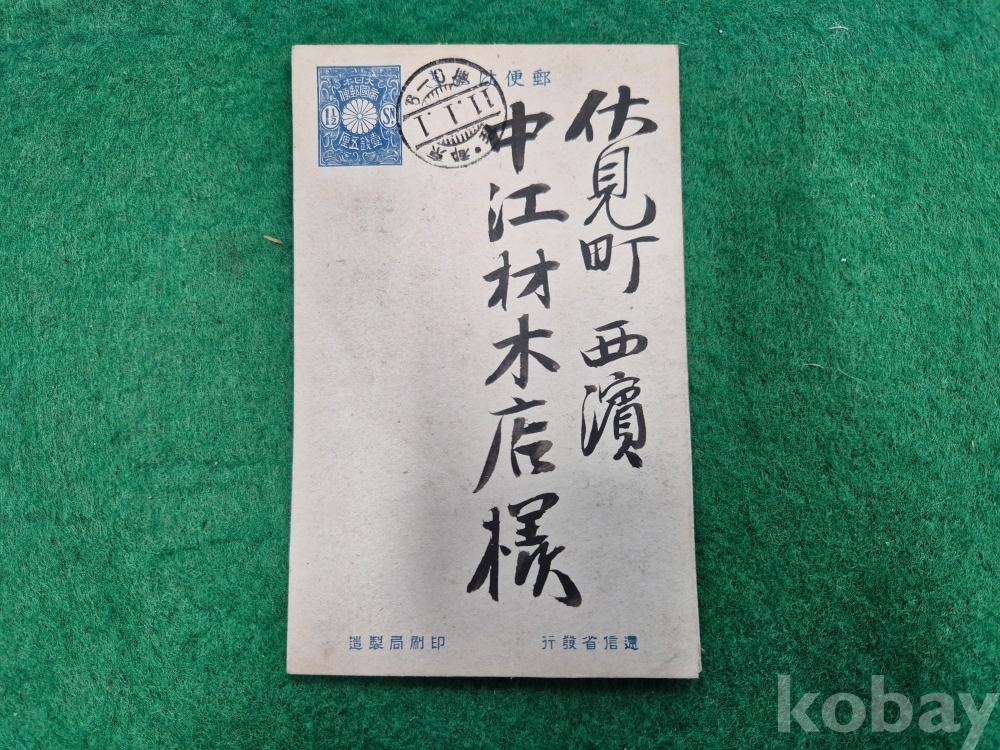 郵便はがき
大日本
帝國郵便
1½
Sn
壹銭五厘
京都
11.1.1
伏見町 西濱
中江材木店様
逓信省發行
印刷局製造
kobay